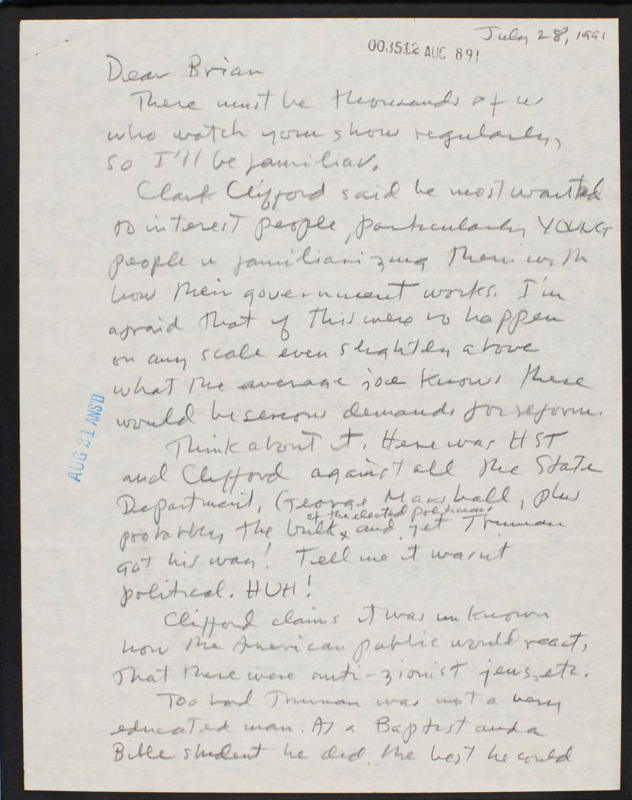 July 28, 1991
003512 AUG 891
Dear Brian
There must be thousands of us
who watch your show regularly,
so I'll be familiar.
Clark Clifford said he most wanted
to interest people, particularly YOUNG
people in familiarizing them with
how their government works. I'm
afraid that if this were to happen
on any scale even slightly above
what the average joe knows there
would be serious demands for reform.
AUG 21 ANS'D
Think about it. Here was HST
and Clifford against all the State
Department, George Marshall, plus
of the elected politicians
probably the bulk, and yet Truman
got his way! Tell me it wasn't
political. HUH!
Clifford claims it was unknown
how the American public would react,
that there were anti-zionist jews, etc.
Too bad Truman was not a very
educated man. As a Baptist and a
Bible student he did the best he could